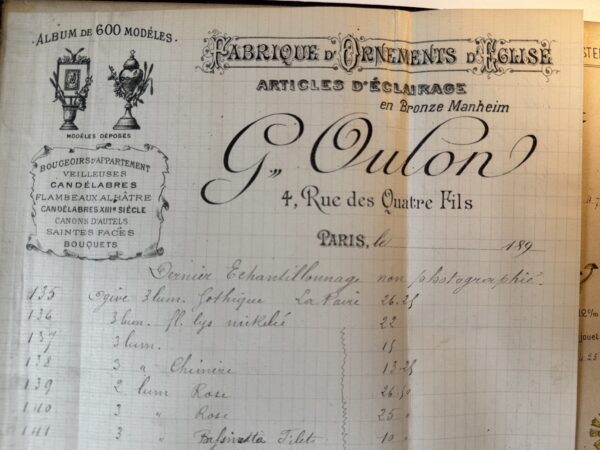 ALBUM DE 600 MODÈLES.
MODÈLES DÉPOSÉS
BOUGEOIRS D'APPARTEMENT
VEILLEUSES
CANDÉLABRES
FLAMBEAUX ALBÂTRE
CANDÉLABRES XIIIe SIÈCLE
CANONS D'AUTELS
SAINTES FACES
BOUQUETS
FABRIQUE D'ORNEMENTS D'EGLISE
ARTICLES D'ÉCLAIRAGE
en Bronze Manheim
G. Oulon
4, Rue des Quatre Fils
PARIS, le 189
Dernier Echantillonnage non photographié.
135 Ogive 3 lum. Gothique La Paire 26.25
136 3 lum. fl. lys nickelé 22
137 3 lum. 15
138 3 " Chimère 13.25
139 2 lum Rose 26.50
140 3 " Rose 25
141 3 " 10
jouet
4.25